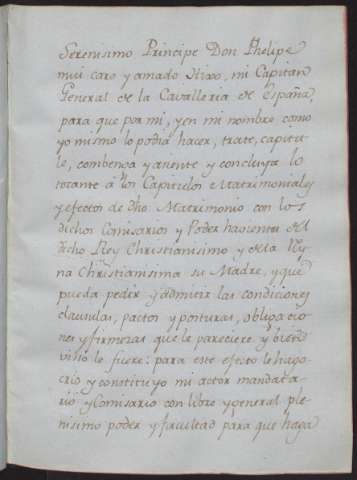 Serenisimo Principe Don Phelipe
mui caro y amado Hixo, mi Capitan
General de la Cavalleria de España,
para que por mi, y en mi nombre como
yo mismo lo podia hacer, trate, capitu-
le, combenga y asiente y concluya lo
tocante â los Capitulos Matrimoniales
y efectos de dho Matrimonio con los
dichos Comisarios y Poder havientes del
dicho Rey Christianisimo y de la Rey
na Christianisima su Madre, y que
pueda pedir y admitir las condiciones
clausulas, pactos y posturas, obligacio
nes y firmezas que le pareciere y bien
visto le fuere: para este efecto le hago
crio y constituyo mi actor mandata
rio y Comisario con libre y general ple
nisimo poder y facultad para que haga